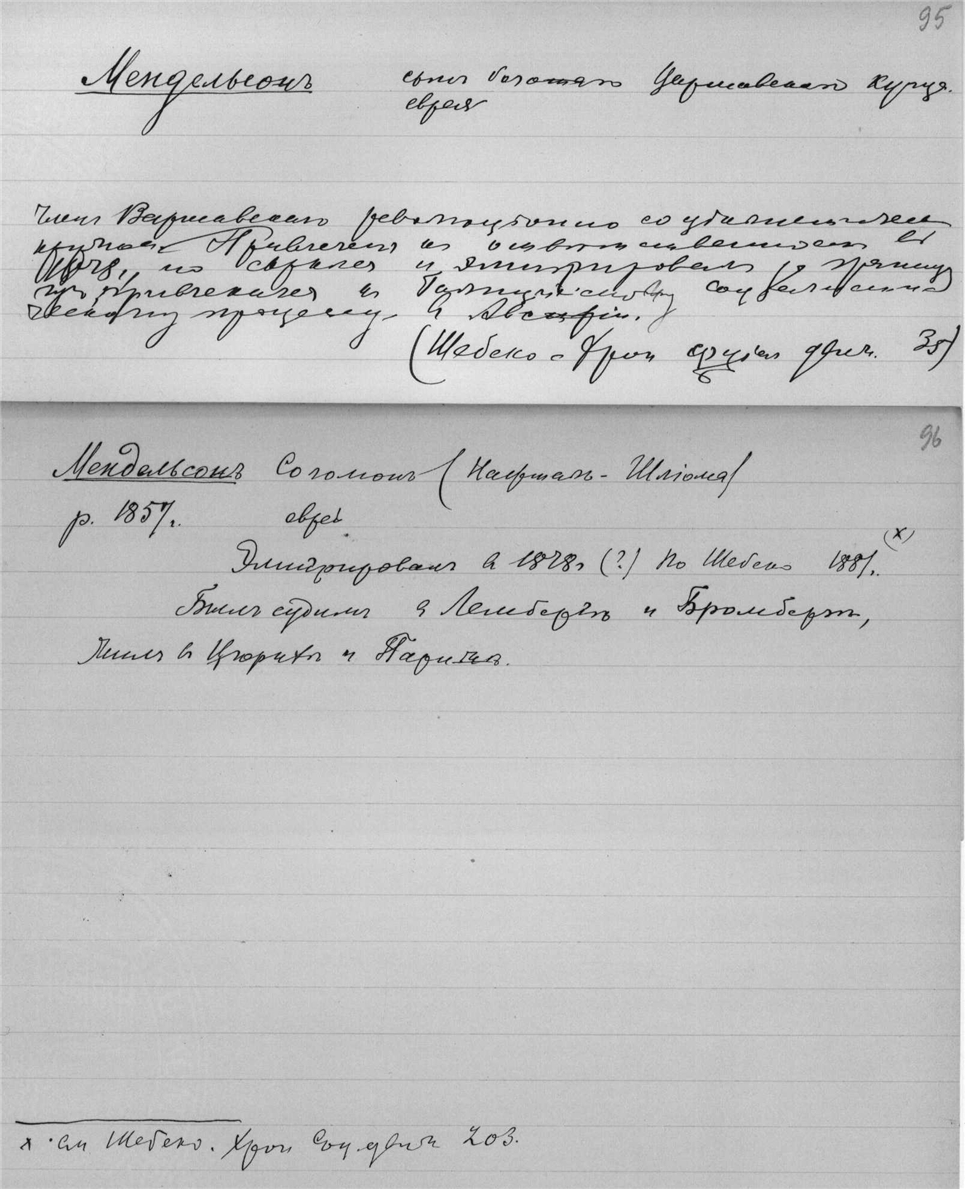 95
Мендельсонъ сынъ богатаго Варшавскаго купца.
еврея
Членъ Варшавскаго революціонно социалистическ
кружка Привлеченъ къ отвѣтственности въ
1878, но скрылся и эмигрировалъ за границу
привлекался къ Галиційскому соціалисти-
ческому процессу въ Австріи.
(Шебеко - Хрон соціал движ. 35)
96
Мендельсонъ Соломонъ (Нафталь - Шліома)
р. 1857 г. еврей
Эмигрировалъ въ 1878 г (?) По Шебеко 1881 г. (x)
Былъ судимъ въ Лембергѣ и Бромбергѣ,
Жилъ въ Цюрихѣ и Парижѣ.
x см Шебеко. Хрон Соц. движ 203.